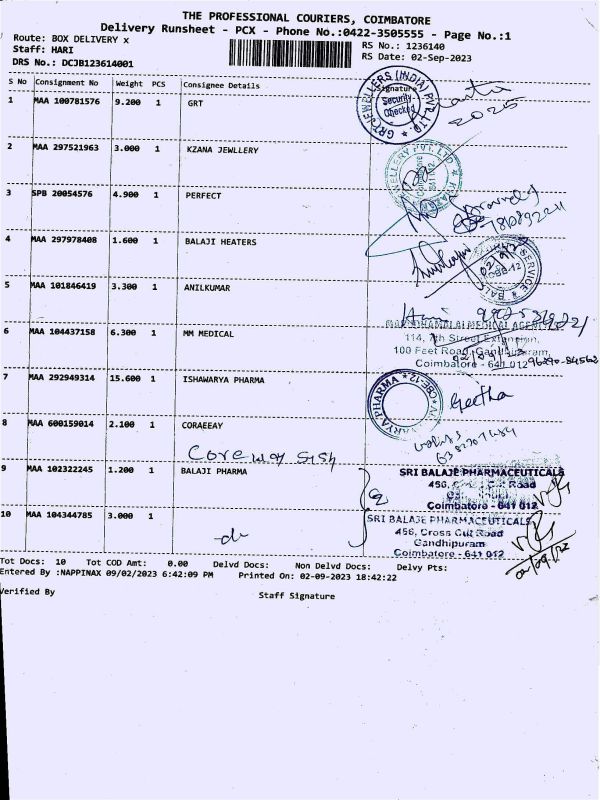 THE PROFESSIONAL COURIERS, COIMBATORE
Delivery Runsheet - PCX - Phone No.:0422-3505555 - Page No.:1
Route: BOX DELIVERY x
RS No.: 1236140
Staff: HARI
RS Date: 02-Sep-2023
DRS No.: DCJB123614001
S No Consignment No Weight PCS Consignee Details Signature
1 MAA 100781576 9.200 1 GRT
GRT JEWELLERS (INDIA) PVT. LTD.
Security
Checked
2025
2 MAA 297521963 3.000 1 KZANA JEWLLERY
JEWELLERY PVT. LTD
3 SPB 20054576 4.900 1 PERFECT
4 MAA 297978408 1.600 1 BALAJI HEATERS
SERVICE
5 MAA 101846419 3.300 1 ANILKUMAR
6 MAA 104437158 6.300 1 MM MEDICAL
114, 7th Street Extension,
100 Feet Road, Gandhipuram,
Coimbatore - 641 012
7 MAA 292949314 15.600 1 ISHAWARYA PHARMA
PHARMA CBE-12
Geetha
8 MAA 600159014 2.100 1 CORAEEAY
9 MAA 102322245 1.200 1 BALAJI PHARMA
SRI BALAJE PHARMACEUTICALS
456, Road
Coimbatore - 641 012
10 MAA 104344785 3.000 1
SRI BALAJE PHARMACEUTICALS
456, Cross Cut Road
Gandhipuram
Coimbatore - 641 012
Tot Docs: 10 Tot COD Amt: 0.00 Delvd Docs: Non Delvd Docs: Delvy Pts:
Entered By :NAPPINAX 09/02/2023 6:42:09 PM Printed On: 02-09-2023 18:42:22
Verified By Staff Signature